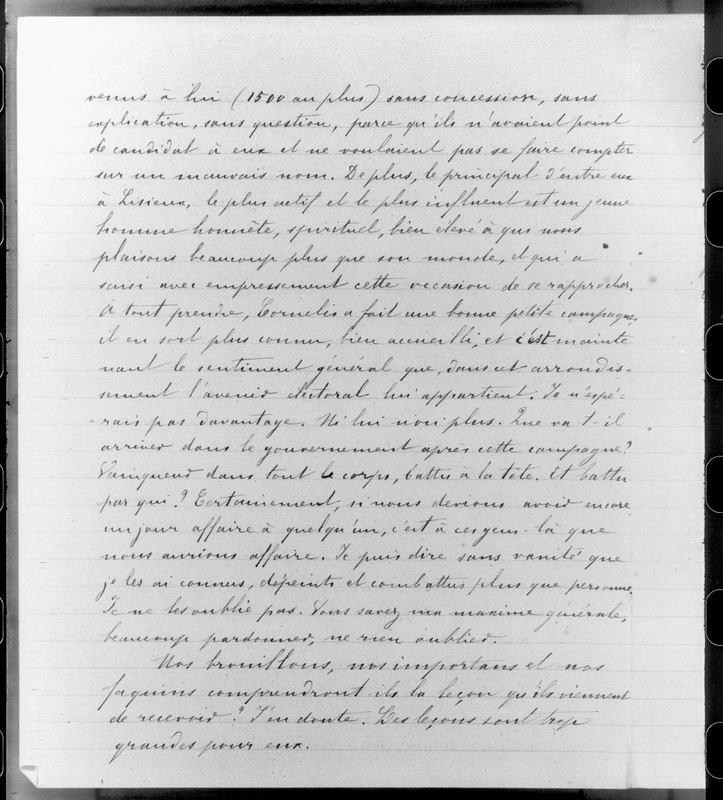 venus à lui (1500 au plus) sans concession, sans
explication, sans question, parce qu'ils n'avaient point
de candidat à eux et ne voulaient pas se faire compter
sur un mauvais nom. De plus, le principal d'entre eux
à Lisieux, le plus actif et le plus influent est un jeune
homme honnête, spirituel, bien élevé à qui nous
plaisons beaucoup plus que son monde, et qui a
saisi avec empressement cette occasion de se rapprocher.
A tout prendre, Cornelis a fait une bonne petite campagne,
il en sort plus connu, bien accueilli, et c'est mainte
nant le sentiment général que, dans cet arrondis-
sement l'avenir électoral lui appartient. Je n'espé-
-rais pas davantage. Ni lui non plus. Que va-t-il
arriver dans le gouvernement après cette campagne?
Vainqueur dans tout le corps, battu à la tête. Et battu
par qui? Certainement, si nous devions avoir encore
un jour affaire à quelqu'un, c'est à ces gens-là que
nous aurions affaire. Je puis dire sans vanité que
je les ai connus, dépeints et combattus plus que personne.
Je ne les oublie pas. Vous savez ma maxime générale,
beaucoup pardonner, ne rien oublier.
Nos brouillons, nos importans et nos
faquins comprendront ils la leçon qu'ils viennent
de recevoir? J'en doute. Les leçons sont trop
grandes pour eux.